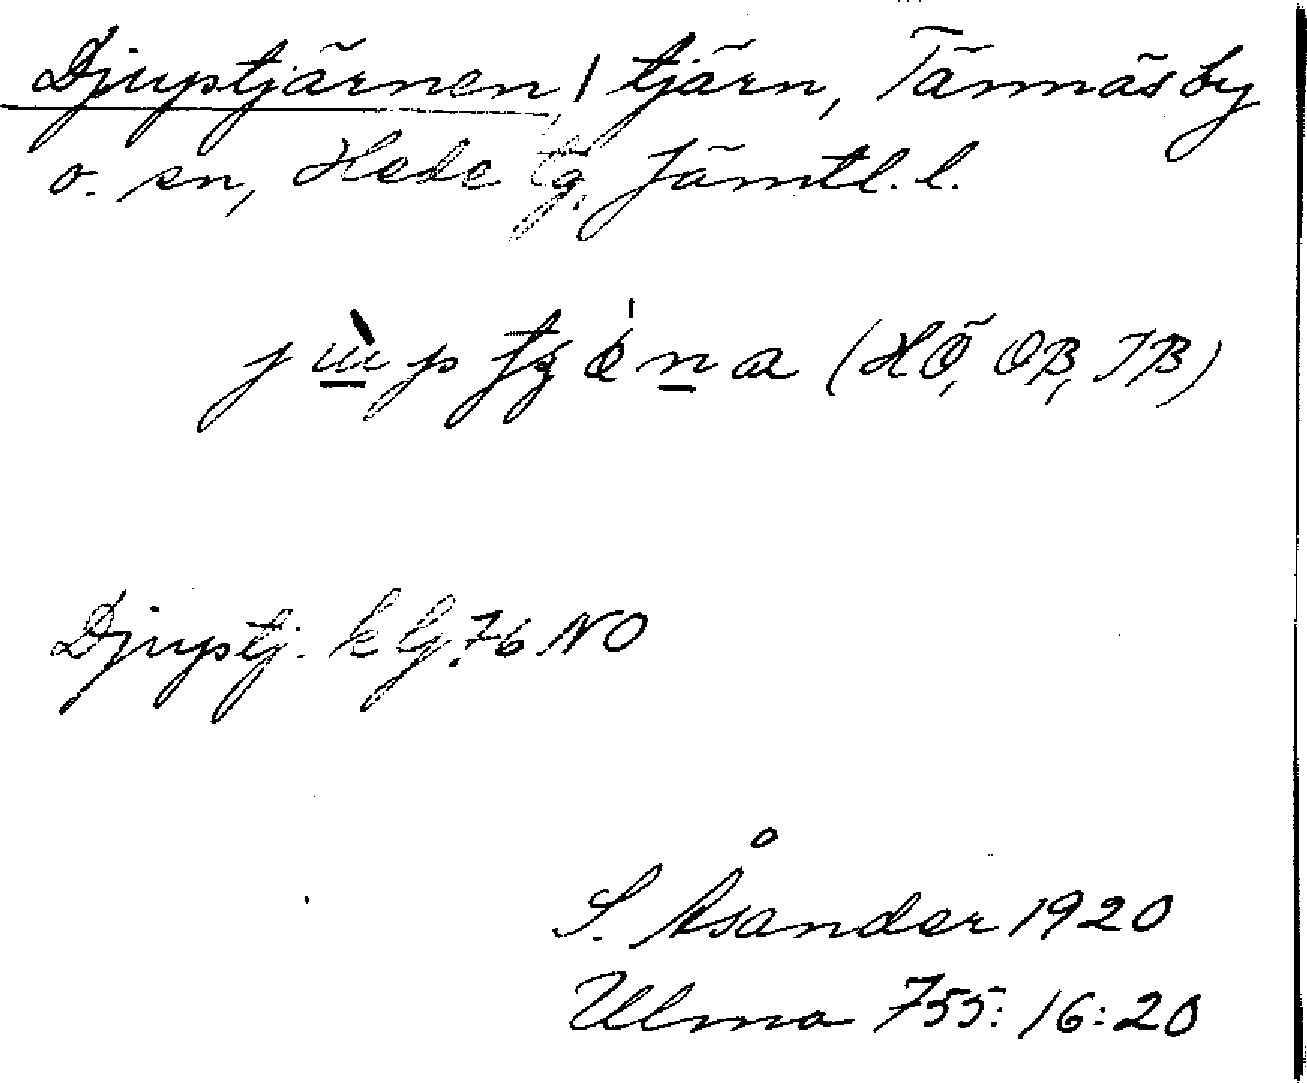 Djuptjärnen / tjärn, Tännäs by
o. sn, Hede tg, Jämtl. l.
(HÖ, OB, JB)
Djuptj. k bg. 76 NO
S. Åsander 1920
Ulma 755: 16:20